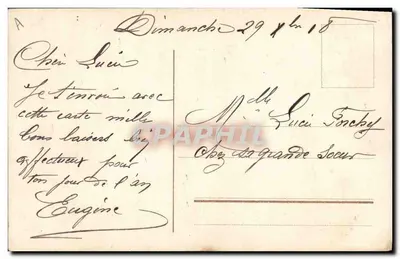 A
Dimanche 29 Xbre 18
Chère Lucie
Je t'envoie avec
cette carte mille
bons baisers bien
affectueux pour
ton jour de l'an
Eugène
Mlle Lucie
chez sa grande soeur
CPAPHIL